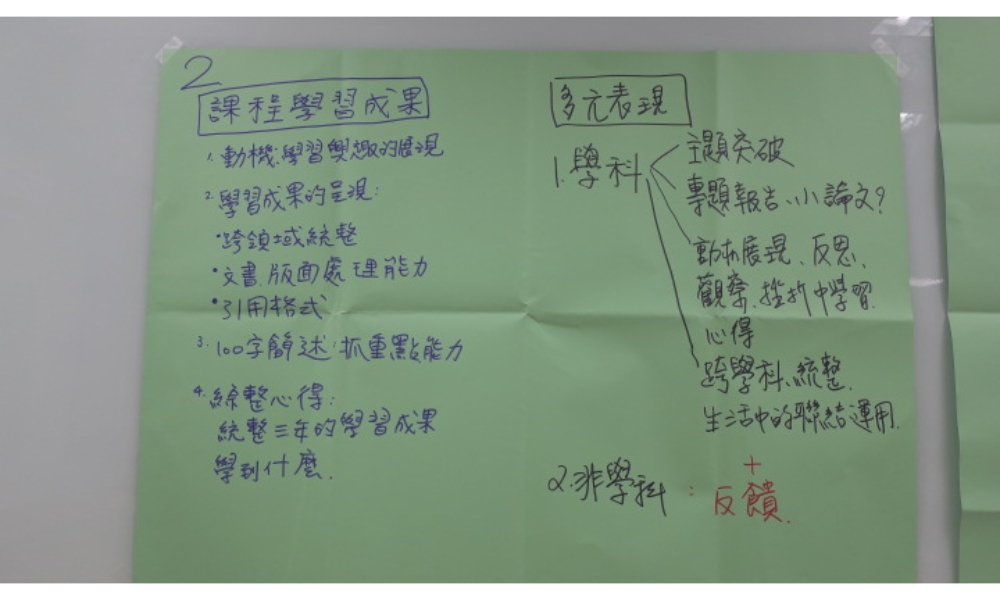 2
課程學習成果
1. 動機、學習興趣的展現
2. 學習成果的呈現:
•跨領域統整
•文書、版面處理能力
•引用格式
3. 100字簡述:抓重點能力
4. 綜整心得:
統整三年的學習成果
學到什麼.
多元表現
1. 學科
主題突破
專題報告、小論文?
動机展現、反思、
觀察、挫折中學習.
心得
跨學科、統整.
生活中的聯結運用.
2.非學科:
+
反饋.